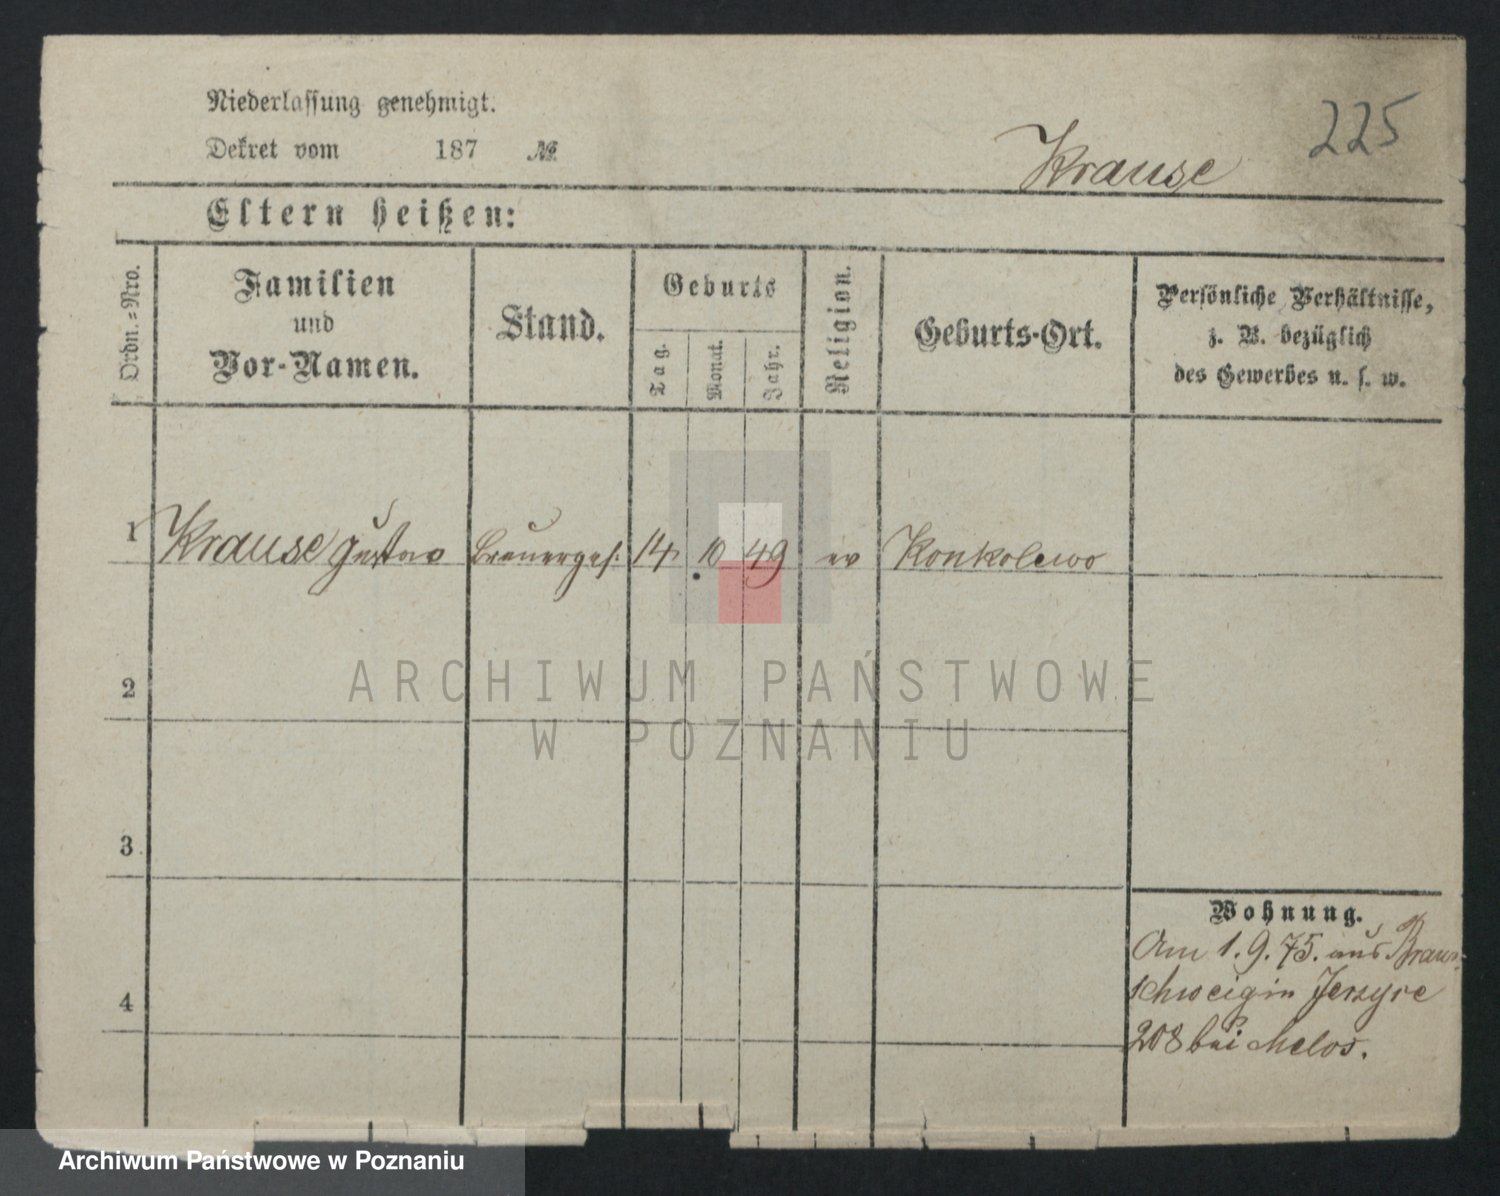 Niederlassung genehmigt.
Dekret vom 187 №
Krause
225
Eltern heißen:
Ordn.-Nro.
Familien
und
Vor-Namen.
Stand.
Geburts
Tag.
Monat.
Jahr.
Religion.
Geburts-Ort.
Persönliche Verhältnisse,
z. B. bezüglich
des Gewerbes u. s. w.
1 Krause Gustav Brauerges: 14 10 49 ev Konkolewo
ARCHIWUM PAŃSTWOWE
W POZNANIU
2
3
4
Wohnung.
Am 1. 9. 75. aus Braun-
schweig in Jerzyce
208 bei Melos.
Archiwum Państwowe w Poznaniu